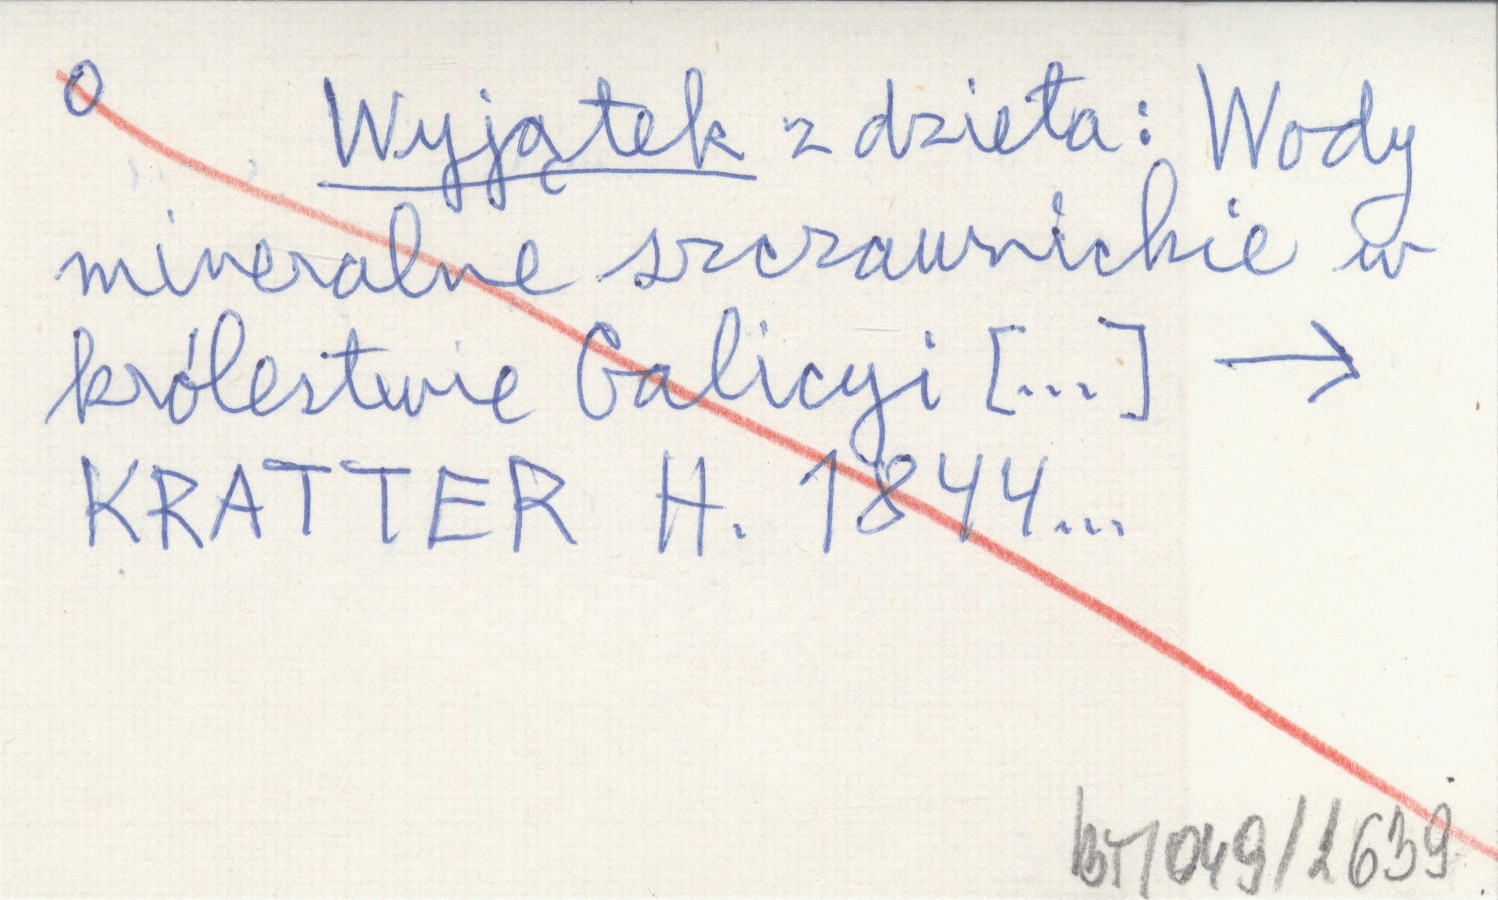 O Wyjątek z dzieła: Wody
mineralne szczawnickie w
królestwie Galicyi [...] →
KRATTER H. 1844...
BT/049/2639